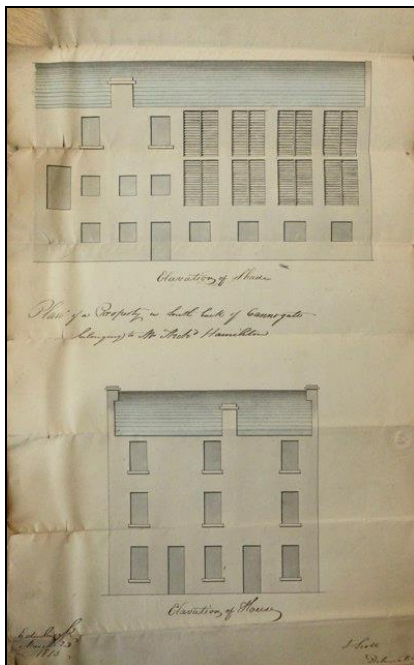 Elevation of Shade
Plan of a Property in South back of Cannogate
belonging to Mr Archd Hamilton
Elevation of House
March 23
J. Scott